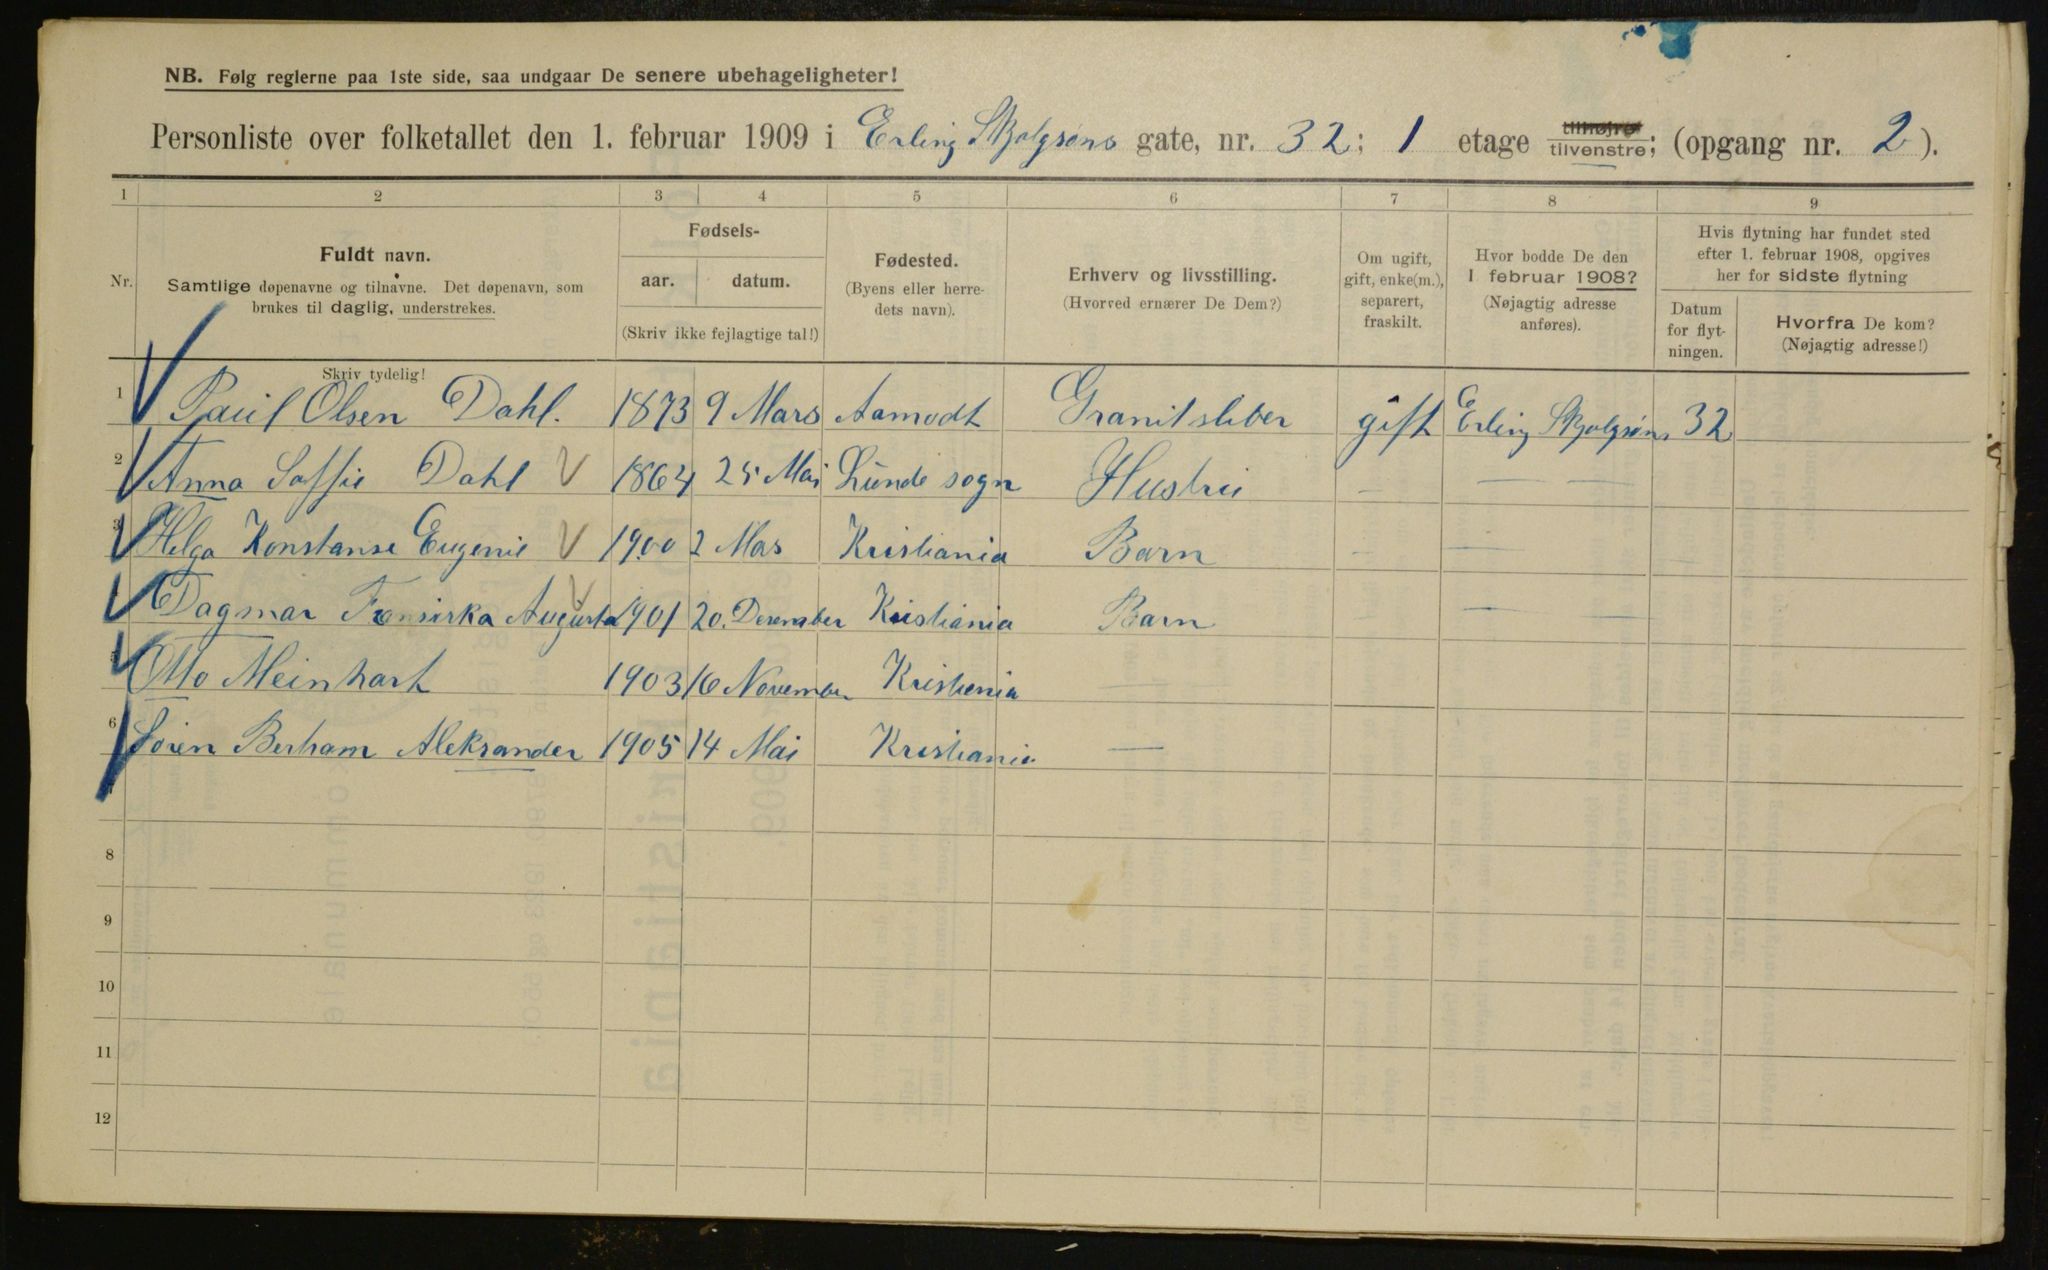 NB. Følg reglerne paa 1ste side, saa undgaar De senere ubehageligheter!
Personliste over folketallet den 1. februar 1909 i Erling Skjalgsøns gate, nr. 32; 1 etage tilhøjre tilvenstre; (opgang nr. 2).
1 2 3 4 5 6 7 8 9
Nr.
Fuldt navn.
Samtlige døpenavne og tilnavne. Det døpenavn, som
brukes til daglig, understrekes.
Fødsels-
aar. datum.
(Skriv ikke fejlagtige tal!)
Fødested.
(Byens eller herre-
dets navn).
Erhverv og livsstilling.
(Hvorved ernærer De Dem?)
Om ugift,
gift, enke(m.),
separert,
fraskilt.
Hvor bodde De den
1 februar 1908?
(Nøjagtig adresse
anføres).
Hvis flytning har fundet sted
efter 1. februar 1908, opgives
her for sidste flytning
Datum
for flyt-
ningen.
Hvorfra De kom?
(Nøjagtig adresse!)
Skriv tydelig!
1 Paul Olsen Dahl. 1873 9 Mars Aamodt Granitsliber gift Erling Skjalgsøns 32
2 Anna Soffie Dahl 1864 25 Mai Lunde sogn Hustru — — —
3 Helga Konstanse Eugenie 1900 2 Mas Kristiania Barn — —
4 Dagmar Fransiska Augusta 1901 20. Desember Kristiania Barn — —
5 Otto Meinhart 1903 16 November Kristiania —
6 Søren Berham Aleksander 1905 14 Mai Kristiania —
7
8
9
10
11
12